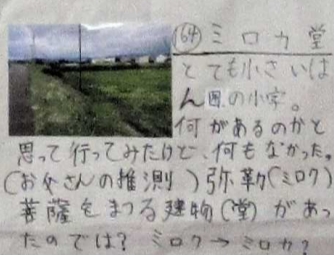 164 ミロカ堂
とても小さいは
ん囲の小字。
何があるのかと
思って行ってみたけど、何もなかった。
(お父さんの推測)弥勒(ミロク)
菩薩をまつる建物(堂)があっ
たのでは?ミロク→ミロカ?